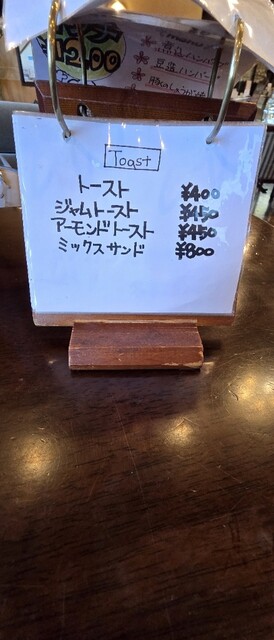 ¥1200
豆腐ハンバーグ
Toast
トースト ¥400
ジャムトースト ¥450
アーモンドトースト ¥450
ミックスサンド ¥800